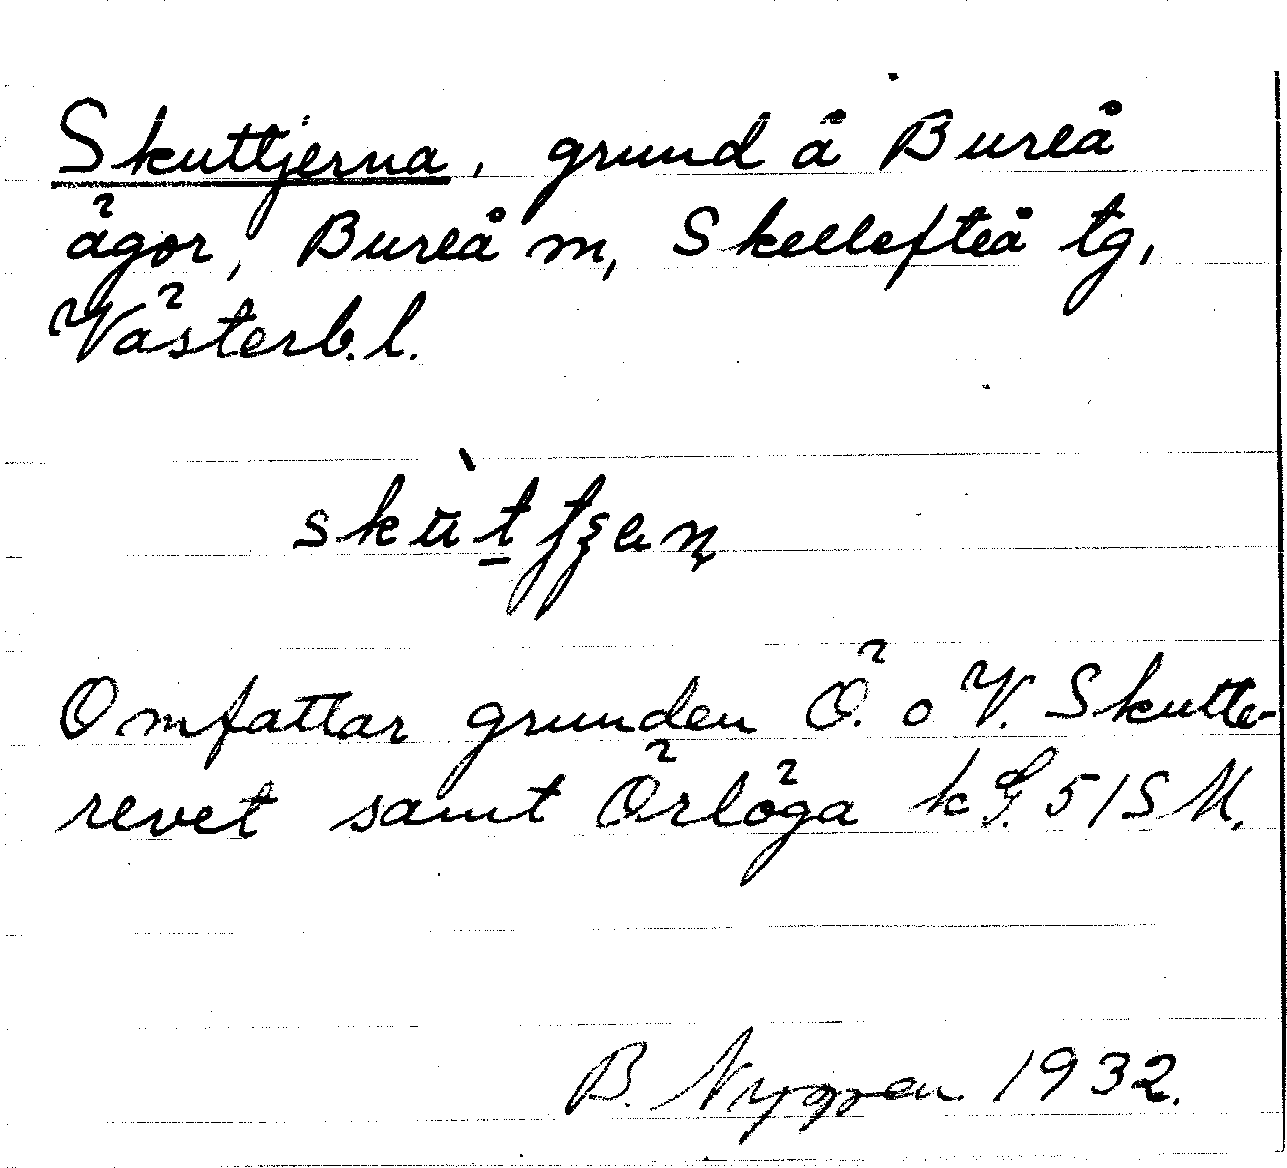 Skuttjerna, grund å Bureå
ägor, Bureå m, Skellefteå tg,
Västerb. l.
Omfattar grunden Ö. o V. Skutte-
revet samt Örlöga k G. 51 S M.
B. Nygren 1932.